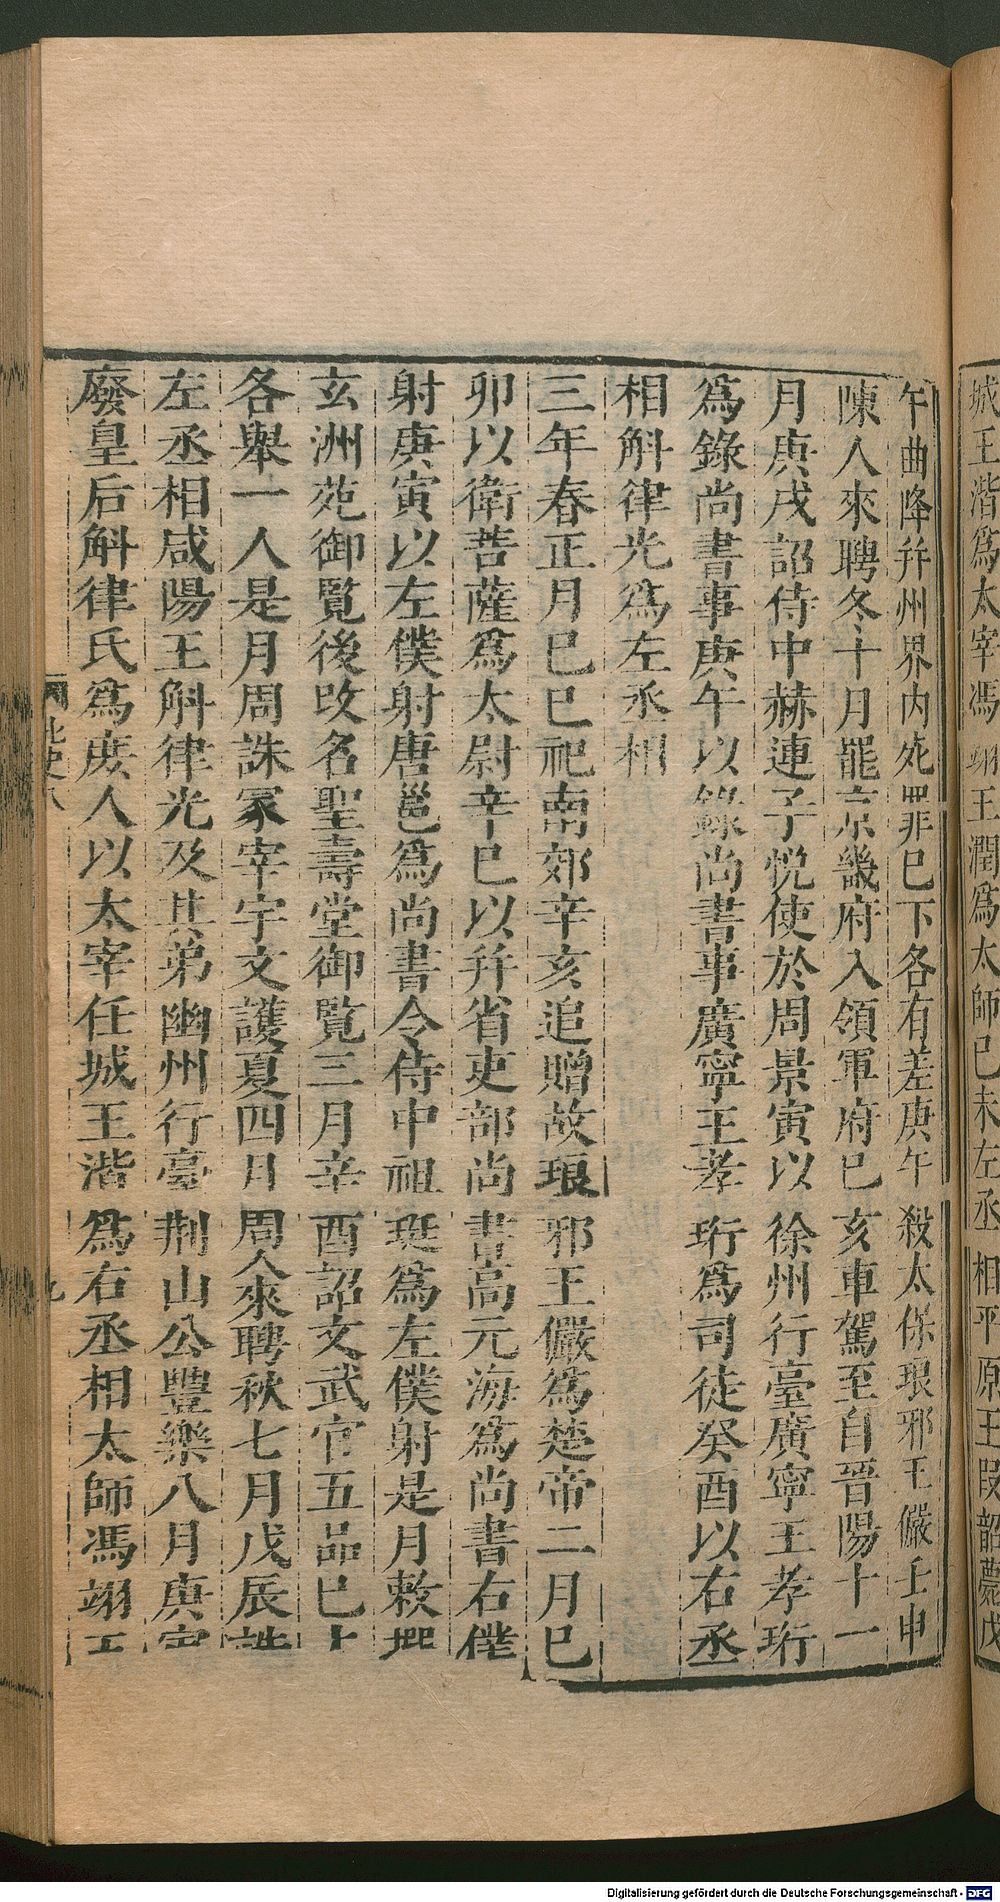 城王湝爲太宰馮翊王潤爲太師己未左丞相平原王段韶薨戊
午曲降幷州界内死罪已下各有差庚午殺太保琅邪王儼壬申
陳人來聘冬十月罷京畿府入領軍府已亥車駕至自晋陽十一
月庚戌詔侍中赫連子悅使於周景寅以徐州行臺廣寧王孝珩
爲錄尚書事庚午以錄尚書事廣寧王孝珩爲司徒癸酉以右丞
相斛律光爲左丞相
三年春正月巳巳祀南郊辛亥追贈故琅邪王儼爲楚帝二月巳
卯以衛菩薩爲太尉辛巳以幷省吏部尚書高元海爲尚書右僕
射庚寅以左僕射唐邕爲尚書令侍中祖珽爲左僕射是月敕撰
玄洲苑御覽後改名聖壽堂御覽三月辛酉詔文武官五品已上
各舉一人是月周誅冢宰宇文護夏四月周人來聘秋七月戊辰誅
左丞相咸陽王斛律光及其弟幽州行臺荆山公豐樂八月庚寅
廢皇后斛律氏爲庶人以太宰任城王湝爲右丞相太師馮翊王
北史八
九
Digitalisierung gefördert durch die Deutsche Forschungsgemeinschaft - DFG